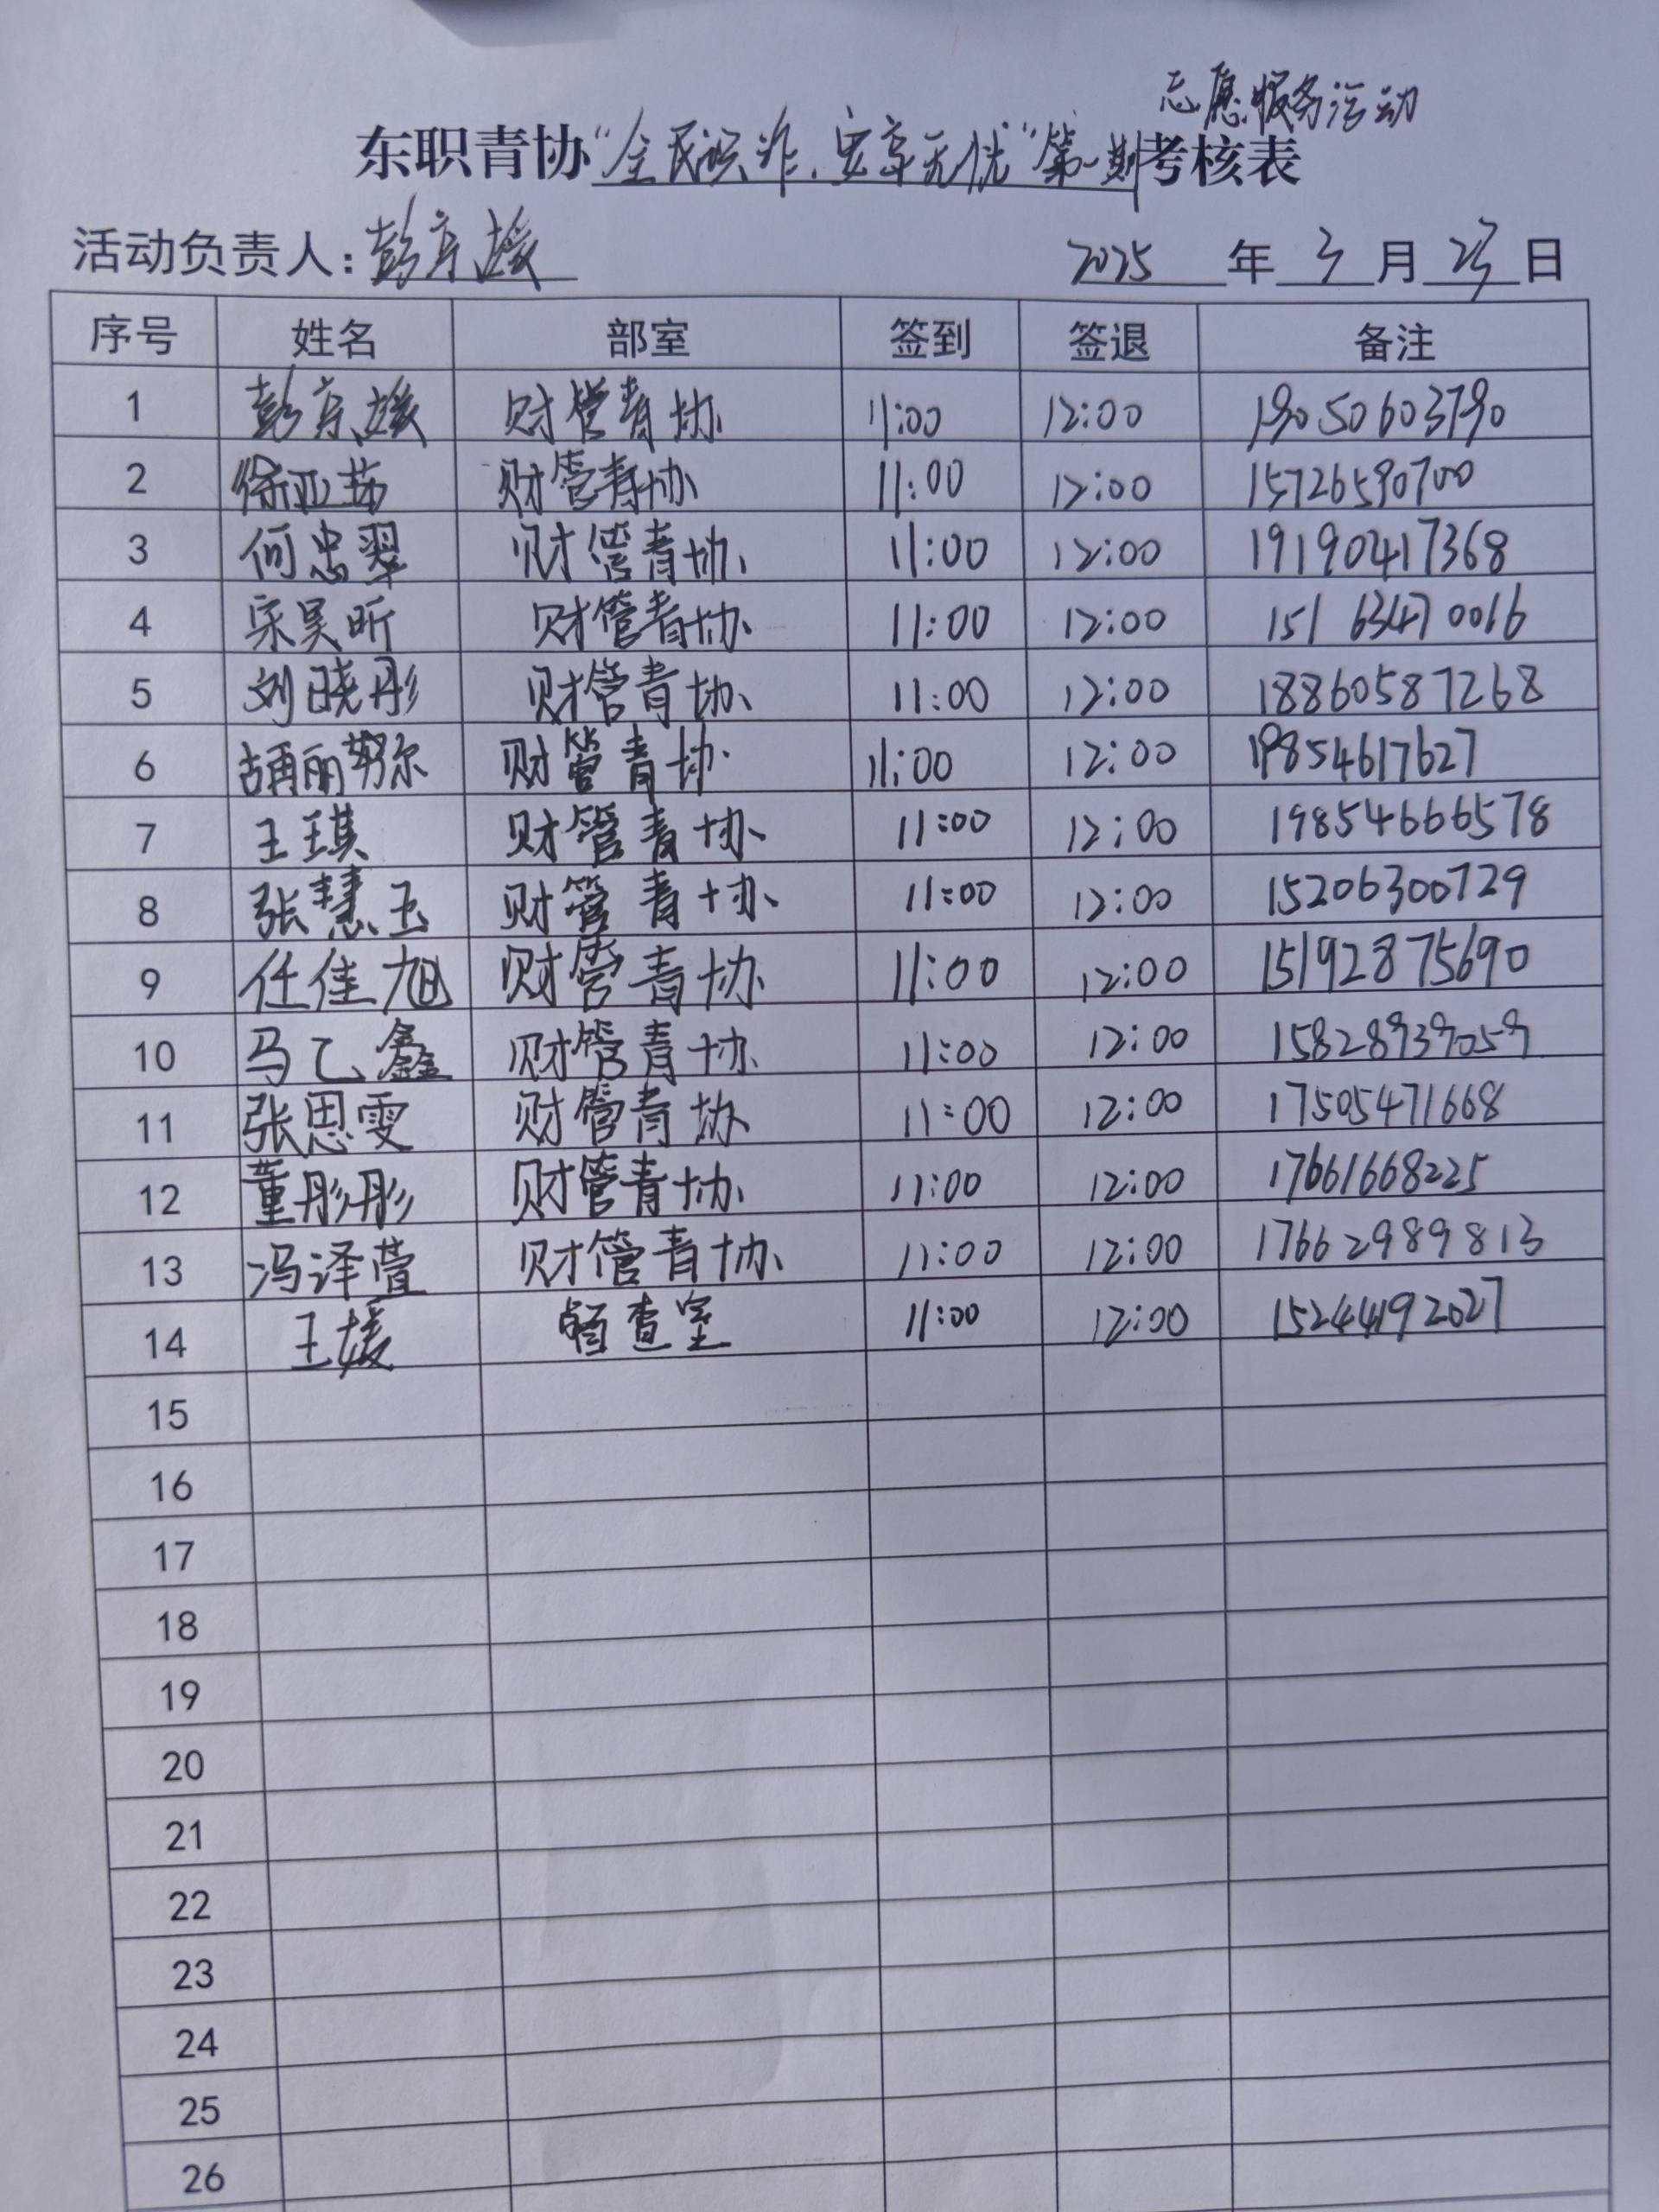 志愿服务活动
东职青协“全民识诈、安享无忧”第一期考核表
活动负责人：彭京媛 2025 年 3 月 23 日
序号 姓名 部室 签到 签退 备注
1 彭京媛 财管青协 11:00 12:00 19050603790
2 徐亚茹 财管青协 11:00 12:00 15726590700
3 何忠翠 财管青协 11:00 12:00 19190417368
4 宋昊昕 财管青协 11:00 12:00 15163470016
5 刘晓彤 财管青协 11:00 12:00 18860587268
6 胡再丽努尔 财管青协 11:00 12:00 19854617627
7 王琪 财管青协 11:00 12:00 19854666578
8 张慧玉 财管青协 11:00 12:00 15206300729
9 任佳旭 财管青协 11:00 12:00 15192875690
10 马乙鑫 财管青协 11:00 12:00 15828939059
11 张思雯 财管青协 11:00 12:00 17505471668
12 董彤彤 财管青协 11:00 12:00 17661668225
13 冯泽萱 财管青协 11:00 12:00 17662989813
14 王媛 查室 11:00 12:00 15244192027
15
16
17
18
19
20
21
22
23
24
25
26